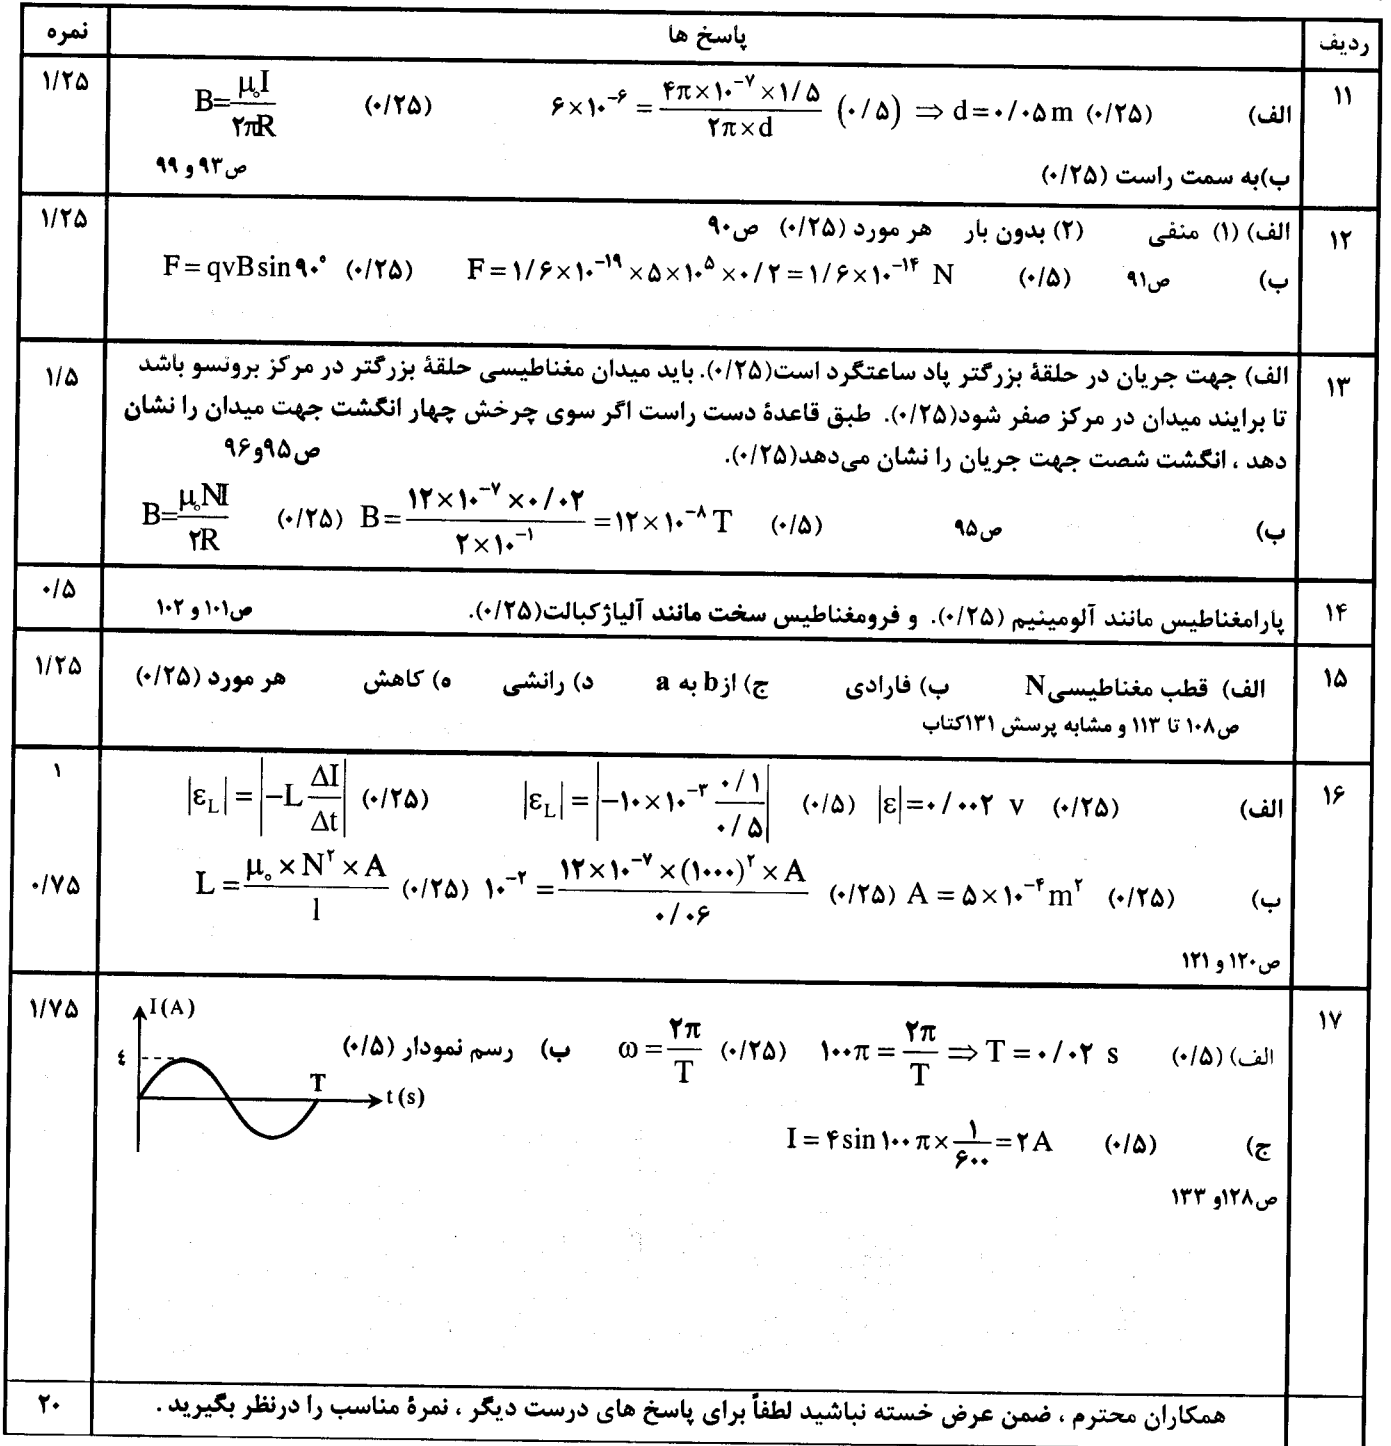 ردیف پاسخ ها نمره
۱۱ الف) B=μ₀I/۲πR (۰/۲۵) ۶×۱۰⁻⁶ = ۴π×۱۰⁻⁷×۱/۵ / ۲π×d (۰/۵) ⇒ d=۰/۰۵ m (۰/۲۵) ۱/۲۵
ب)به سمت راست (۰/۲۵) ص۹۳ و ۹۹
۱۲ الف) (۱) منفی (۲) بدون بار هر مورد (۰/۲۵) ص۹۰ ۱/۲۵
ب) ص۹۱ F=qvBsin۹۰° (۰/۲۵) F=۱/۶×۱۰⁻¹⁹×۵×۱۰⁵×۰/۲=۱/۶×۱۰⁻¹⁴ N (۰/۵)
۱۳ الف) جهت جریان در حلقهٔ بزرگتر پاد ساعتگرد است(۰/۲۵). باید میدان مغناطیسی حلقهٔ بزرگتر در مرکز برونسو باشد ۱/۵
تا برایند میدان در مرکز صفر شود(۰/۲۵). طبق قاعدهٔ دست راست اگر سوی چرخش چهار انگشت جهت میدان را نشان
دهد ، انگشت شصت جهت جریان را نشان می‌دهد(۰/۲۵). ص۹۵و۹۶
ب) B=μ₀NI/۲R (۰/۲۵) B=۱۲×۱۰⁻⁷×۰/۰۲ / ۲×۱۰⁻¹ =۱۲×۱۰⁻⁸ T (۰/۵) ص۹۵
۱۴ پارامغناطیس مانند آلومینیم (۰/۲۵). و فرومغناطیس سخت مانند آلیاژکبالت(۰/۲۵). ص۱۰۱ و ۱۰۲ ۰/۵
۱۵ الف) قطب مغناطیسیN ب) فارادی ج) ازb به a د) رانشی ه) کاهش هر مورد (۰/۲۵) ۱/۲۵
ص۱۰۸ تا ۱۱۳ و مشابه پرسش ۱۳۱کتاب
۱۶ الف) |ε_L|=|−L ΔI/Δt| (۰/۲۵) |ε_L|=|−۱۰×۱۰⁻³ ۰/۱ / ۰/۵| (۰/۵) |ε|=۰/۰۰۲ v (۰/۲۵) ۱
ب) L=μ₀×N²×A / l (۰/۲۵) ۱۰⁻²=۱۲×۱۰⁻⁷×(۱۰۰۰)²×A / ۰/۰۶ (۰/۲۵) A=۵×۱۰⁻⁴m² (۰/۲۵) ۰/۷۵
ص۱۲۰ و ۱۲۱
۱۷ الف) (۰/۵) ω=۲π/T (۰/۲۵) ۱۰۰π=۲π/T ⇒ T=۰/۰۲ s ب) رسم نمودار (۰/۵) ۱/۷۵
I(A)
٤
T
t(s)
ج) I=۴sin۱۰۰π×۱/۶۰۰=۲A (۰/۵)
ص۱۲۸و ۱۳۳
همکاران محترم ، ضمن عرض خسته نباشید لطفاً برای پاسخ های درست دیگر ، نمرهٔ مناسب را درنظر بگیرید . ۲۰